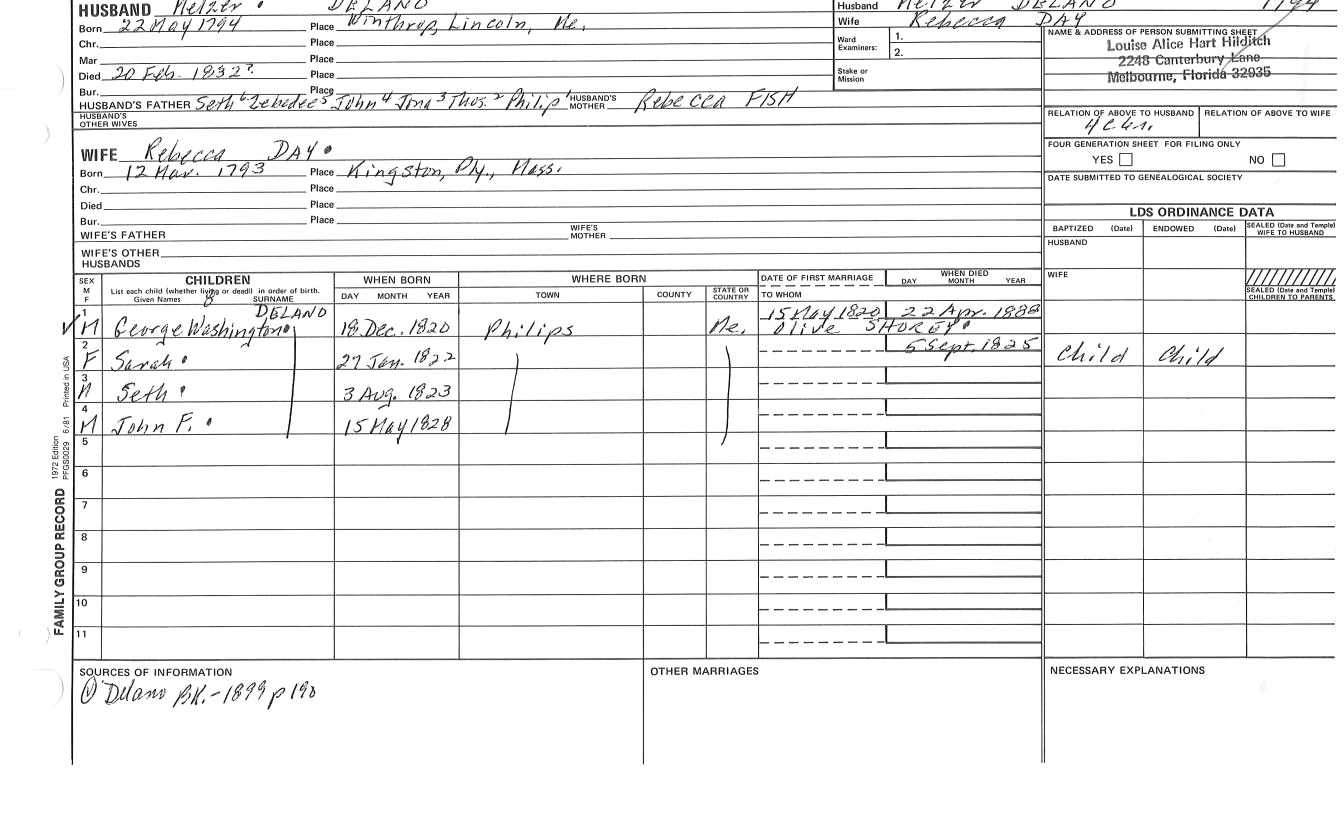 HUSBAND Melzer DELANO
Born 22 May 1794 Place Winthrop, Lincoln, Me.
Chr. Place
Mar Place
Died 20 Feb. 1832? Place
Bur. Place
HUSBAND'S FATHER Seth 6 Zebedee 5 John 4 Jona 3 Thos. 2 Philip 1 HUSBAND'S MOTHER Rebecca FISH
HUSBAND'S OTHER WIVES
WIFE Rebecca DAY
Born 12 Mar. 1793 Place Kingston, Ply., Mass.
Chr. Place
Died Place
Bur. Place
WIFE'S FATHER WIFE'S MOTHER
WIFE'S OTHER HUSBANDS
Husband Melzer DELANO 1794
Wife Rebecca DAY
Ward Examiners: 1.
2.
Stake or Mission
NAME & ADDRESS OF PERSON SUBMITTING SHEET
Louise Alice Hart Hilditch
2248 Canterbury Lane
Melbourne, Florida 32935
RELATION OF ABOVE TO HUSBAND RELATION OF ABOVE TO WIFE
FOUR GENERATION SHEET FOR FILING ONLY
YES NO
DATE SUBMITTED TO GENEALOGICAL SOCIETY
LDS ORDINANCE DATA
BAPTIZED (Date) ENDOWED (Date) SEALED (Date and Temple) WIFE TO HUSBAND
HUSBAND
WIFE
SEALED (Date and Temple) CHILDREN TO PARENTS
SEX M F CHILDREN WHEN BORN WHERE BORN DATE OF FIRST MARRIAGE WHEN DIED
List each child (whether living or dead) in order of birth.
Given Names SURNAME DAY MONTH YEAR TOWN COUNTY STATE OR COUNTRY TO WHOM DAY MONTH YEAR
1 M George Washington DELANO 18 Dec. 1820 Philips Me. 15 May 1820 22 Apr. 1888
Olive SHOREY
2 F Sarah 27 Jan. 1822 5 Sept. 1825 Child Child
3 M Seth 3 Aug. 1823
4 M John F. 15 May 1828
5
6
7
8
9
10
11
FAMILY GROUP RECORD
1972 Edition
PFGS0029 6/81 Printed in USA
SOURCES OF INFORMATION OTHER MARRIAGES NECESSARY EXPLANATIONS
① Delano BK.-1899 p 190